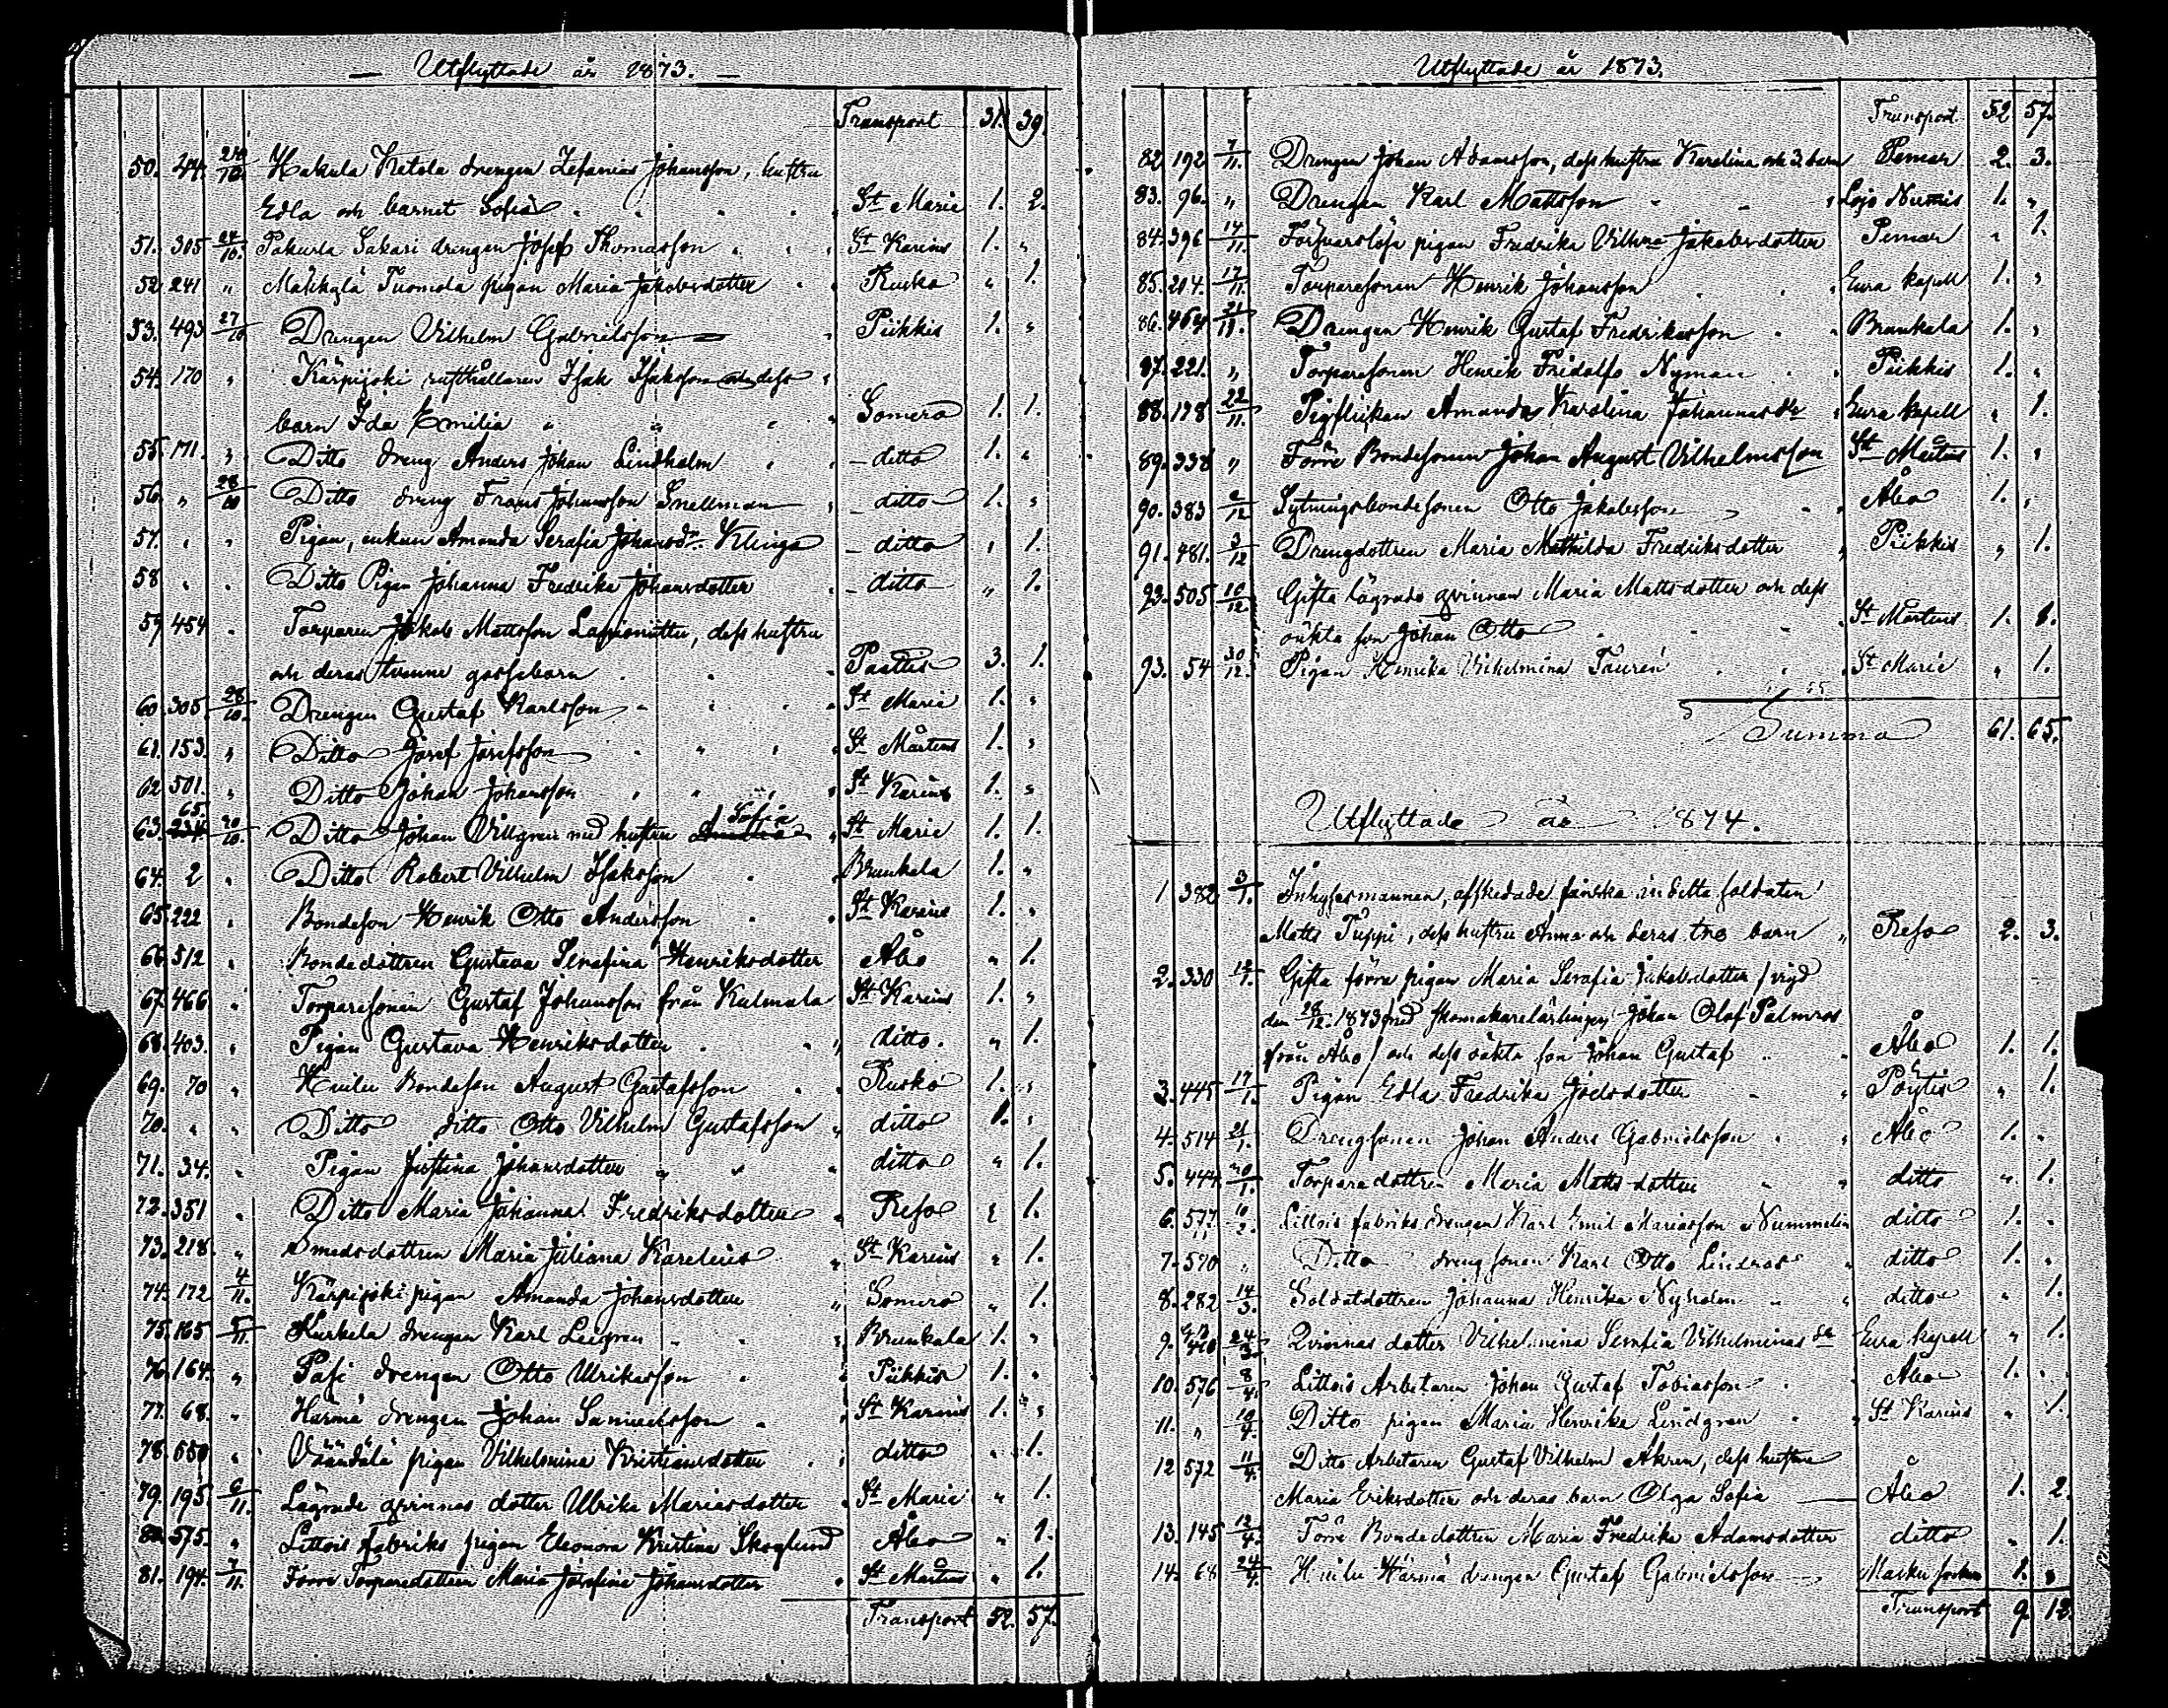 Utflyttade år 1873.
Transport 31. 39.
50. 44. 20/10. Hakula Ketola drengen Zefanias Johansson, hustru
Edla och barnet Sofia St Marie 1. 2.
51. 305 24/10. Pakurla Sakari drengen Josef Thomasson St Karins 1. "
52. 241 " Mälikylä Tuomola pigan Maria Jakobsdotter Rusko " 1.
53. 493 27/10 Drengen Vilhelm Gabrielsson Piikkis 1. "
54. 170 " Kärpijoki rusthållaren Isak Isaksson och dess
barn Ida Emilia Somero 1. 1.
55. 171. " Ditto dreng Anders Johan Lindholm ditto 1. "
56. " 28/10 Ditto dreng Frans Johansson Snellman ditto 1. "
57. " " Pigan, enkan Amanda Serafia Johansdr. Klinga ditto " 1.
58 " " Ditto Pigan Johanna Fredrika Johansdotter ditto " 1.
59 454 " Torparen Jakob Mattsson Lapionittu, dess hustru
och deras tvenne gossebarn Paattis 3. 1.
60. 305. 28/10. Drengen Gustaf Karlsson St Maria 1. "
61. 153. " Ditto Josef Josefsson St Mårtens 1. "
62 501. " Ditto Johan Johansson St Karins 1. "
63. 65. 20/10. Ditto Johan Villgren med hustru Sofia St Marie 1. 1.
64. 2 " Ditto Robert Vilhelm Isaksson Brunkala 1. "
65. 222 " Bondeson Henrik Otto Andersson St Karins 1. "
66. 512 " Bondedottren Gustava Serafina Henriksdotter Åbo " 1.
67. 466 " Torparesonen Gustaf Johansson från Kulmala St Karins 1. "
68. 403. " Pigan Gustava Henriksdotter ditto. " 1.
69. 70 " Huilu Bondeson August Gustafsson Rusko 1. "
70. " " Ditto ditto Otto Vilhelm Gustafsson ditto 1. "
71. 34. " Pigan Justina Johansdotter ditto " 1.
72. 351 " Ditto Maria Johanna Fredriksdotter Reso " 1.
73. 218. " Smedsdottren Maria Juliana Karelius St Karins " 1.
74. 172 4/11. Kärpijoki pigan Amanda Johansdotter Somero " 1.
75. 165 5/11. Kurkela drengen Karl Leegren Brunkala 1. "
76. 164. " Pasi drengen Otto Ulriksson Piikkis 1. "
77. 68. " Härmä drengen Johan Samuelsson St Karins 1. "
78. 550 " Väändälä pigan Vilhelmina Kristiansdotter ditto " 1.
79. 195 6/11. Lägrade qvinnas dotter Ulrika Mariasdotter St Marie " 1.
80. 575. " Littois Fabriks pigan Eleonora Kristina Skoglund Åbo " 1.
81. 194. 7/11. Förre Torparedottren Maria Josefina Johansdotter St Mårtens " 1.
Transport 52. 57.
Utflyttade år 1873.
Transport 52 57.
82 192 7/11. Drengen Johan Adamsson, dess hustru Karolina och 3 barn Pemar 2. 3.
83. 96. " Drengen Karl Mattsson Lojo Nummis 1. "
84. 396 14/11. Försvarslösa pigan Fredrika Vilhma Jakobsdotter Pemar " 1.
85. 204. 17/11. Torparesonen Henrik Johansson Eura kapell 1. "
86. 464 21/11. Drengen Henrik Gustaf Fredriksson Brunkala 1. "
87. 221. " Torparesonen Henrik Fridolf Nyman Piikkis 1. "
88. 128 22/11. Pigflickan Amanda Karolina Johannasdr Eura kapell " 1.
89. 338 " Förre Bondesonen Johan August Vilhelmsson St Mårtens 1. "
90. 383 2/12 Sytningsbondesonen Otto Jakobsson Åbo 1. "
91. 481. 3/12 Drengdottren Maria Mathilda Fredriksdotter Piikkis " 1.
93. 505 10/12. Gifta lägrade qvinnan Maria Mattsdotter och dess
oäkta son Johan Otto St Mårtens 1. 1.
93. 54 30/12. Pigan Henrika Vilhelmina Tauren St Marie " 1.
Summa 61. 65.
Utflyttade år 1874.
1 382 3/1. Inhysesmannen, afskedade finska indelta soldaten
Matts Puppi, dess hustru Anna och deras tre barn Reso 2. 3.
2. 330 12/1. Gifta förra pigan Maria Serafia Jakobsdotter / vigd
den 28/12. 1873 med skomakarelärlingen Johan Olof Palmros
från Åbo / och dess oäkta son Johan Gustaf Åbo 1. 1.
3. 445 17/1. Pigan Edla Fredrika Joelsdotter Pöytis " 1.
4. 514 21/1. Drengsonen Johan Anders Gabrielsson Åbo 1. "
5. 444. 20/1. Torparedottren Maria Mattsdotter ditto " 1.
6. 577. 10/2. Littois fabriks drengen Karl Emil Mariasson Nummelin ditto 1. "
7. 570 " Ditto drengsonen Karl Otto Lindros ditto 1. "
8. 282 14/3. Soldatdottren Johanna Henrika Nyholm ditto " 1.
9. 24/3. Qvinnas dotter Vilhelmina Serafia Vilhelminas dr Eura kapell " 1.
10. 576 8/4. Littois Arbetaren Johan Gustaf Tobiasson Åbo 1. "
11. " 10/4. Ditto pigan Maria Henrika Lindgren St Karins " 1.
12 572 11/4. Ditto Arbetaren Gustaf Vilhelm Åkren, dess hustru
Maria Eriksdotter och deras barn Olga Sofia Åbo 1. 2.
13. 145 12/4. Förre Bondedottren Maria Fredrika Adamsdotter ditto " 1.
14. 68 24/4. Huilu Härmä drengen Gustaf Gabrielsson Masku socken 1. "
Transport 9. 12.